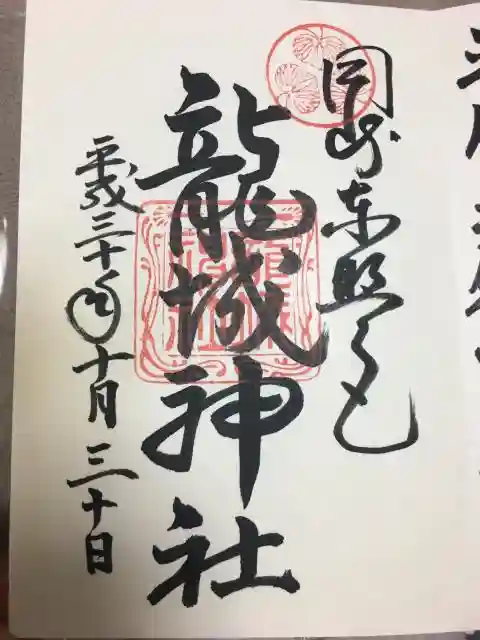 岡崎東照宮
龍城神社
平成三十年十月三十日